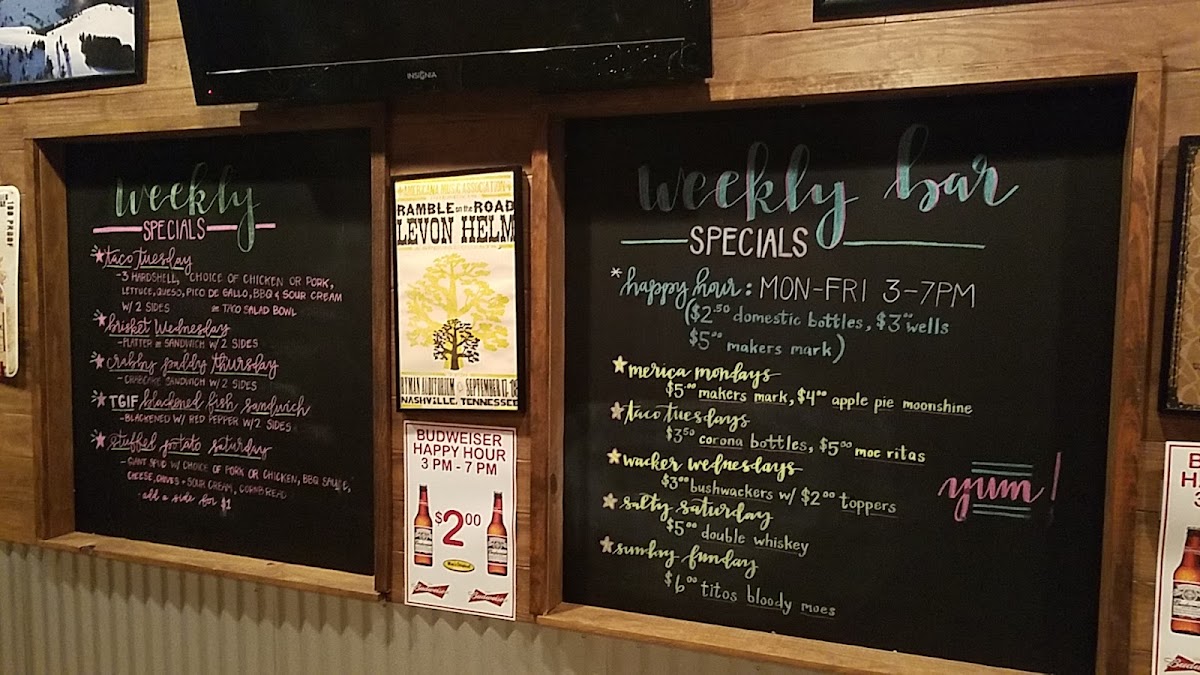 INSIGNIA
100 PROOF
weekly
SPECIALS
taco tuesday
-3 HARDSHELL, CHOICE OF CHICKEN OR PORK,
LETTUCE, QUESO, PICO DE GALLO, BBQ & SOUR CREAM
W/ 2 SIDES or TACO SALAD BOWL
brisket Wednesday
-PLATTER or SANDWICH W/ 2 SIDES
crabby paddy thursday
-CRABCAKE SANDWICH W/ 2 SIDES
TGIF blackened fish sandwich
-BLACKENED W/ RED PEPPER W/ 2 SIDES
stuffed potato saturday
-GIANT SPUD W/ CHOICE OF PORK OR CHICKEN, BBQ SAUCE,
CHEESE, CHIVES + SOUR CREAM, CORNBREAD
add a side for $1
AMERICANA MUSIC ASSOCIATION
RAMBLE on the ROAD
LEVON HELM
RYMAN AUDITORIUM SEPTEMBER 17, 18
NASHVILLE, TENNESSEE
BUDWEISER
HAPPY HOUR
3 PM - 7 PM
$2.00
Budweiser
Budweiser
weekly bar
SPECIALS
*happy hour: MON-FRI 3-7PM
($2.50 domestic bottles, $3.00 wells
$5.00 makers mark)
merica mondays
$5.00 makers mark, $4.00 apple pie moonshine
taco tuesdays
$3.50 corona bottles, $5.00 moe ritas
wacker wednesdays
$3.00 bushwackers w/ $2.00 toppers
salty saturday
$5.00 double whiskey
sunday funday
$6.00 titos bloody moes
yum!